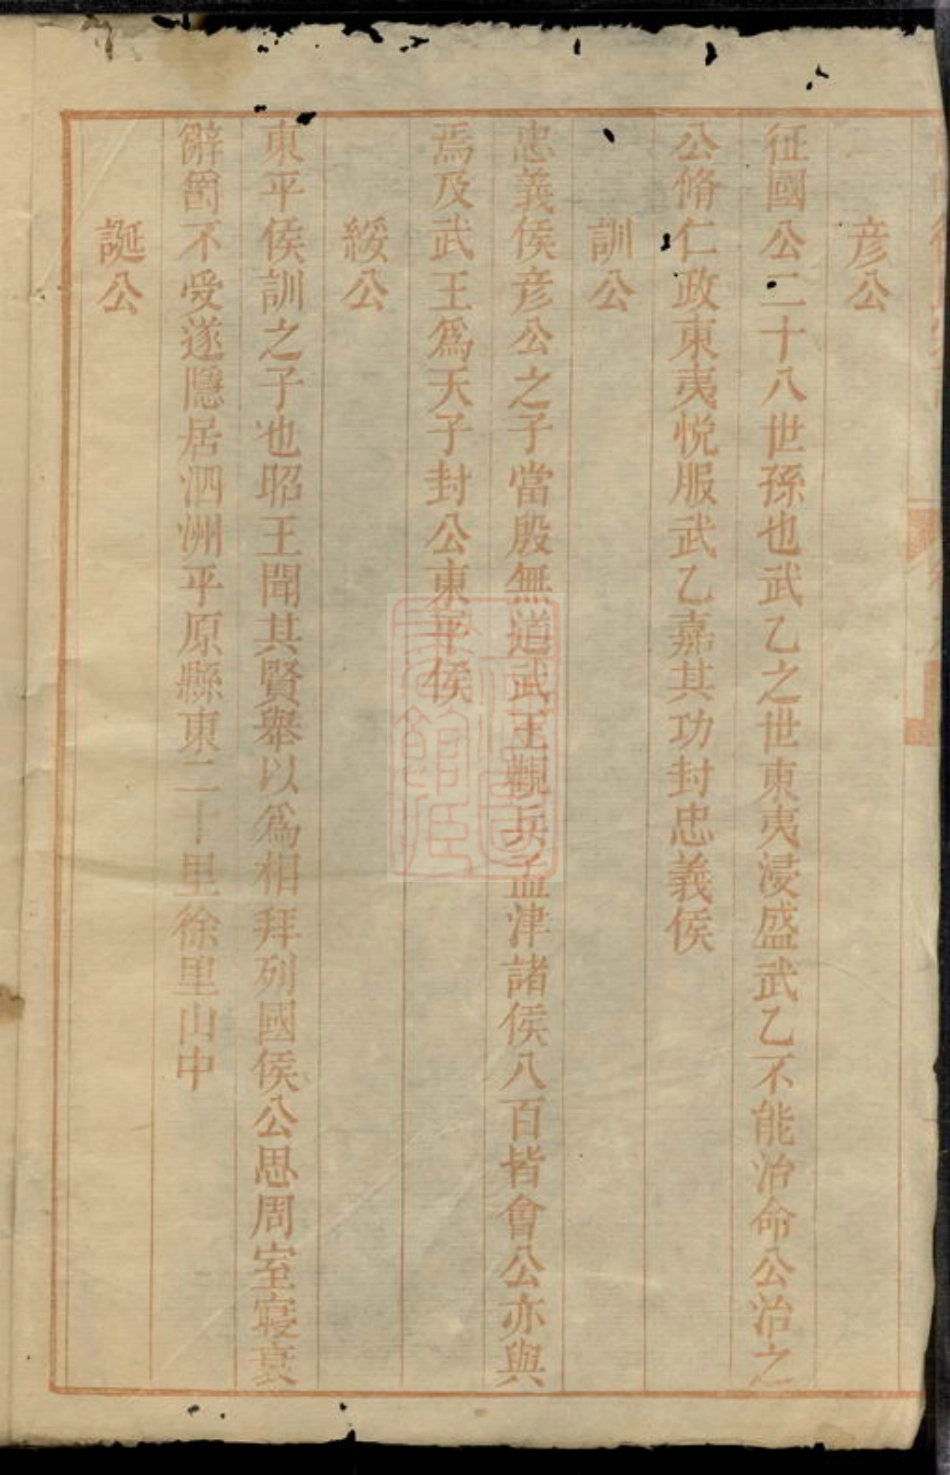 彦公
征國公二十八世孫也武乙之世東夷浸盛武乙不能治命公治之
公脩仁政東夷悦服武乙嘉其功封忠義侯
訓公
忠義侯彦公之子當殷無道武王觀兵孟津諸侯八百皆會公亦與
焉及武王爲天子封公東平侯
綏公
東平侯訓之子也昭王聞其賢舉以爲相拜列國侯公思周室寖衰
辭爵不受遂隱居泗洲平原縣東二十里徐里山中
誕公